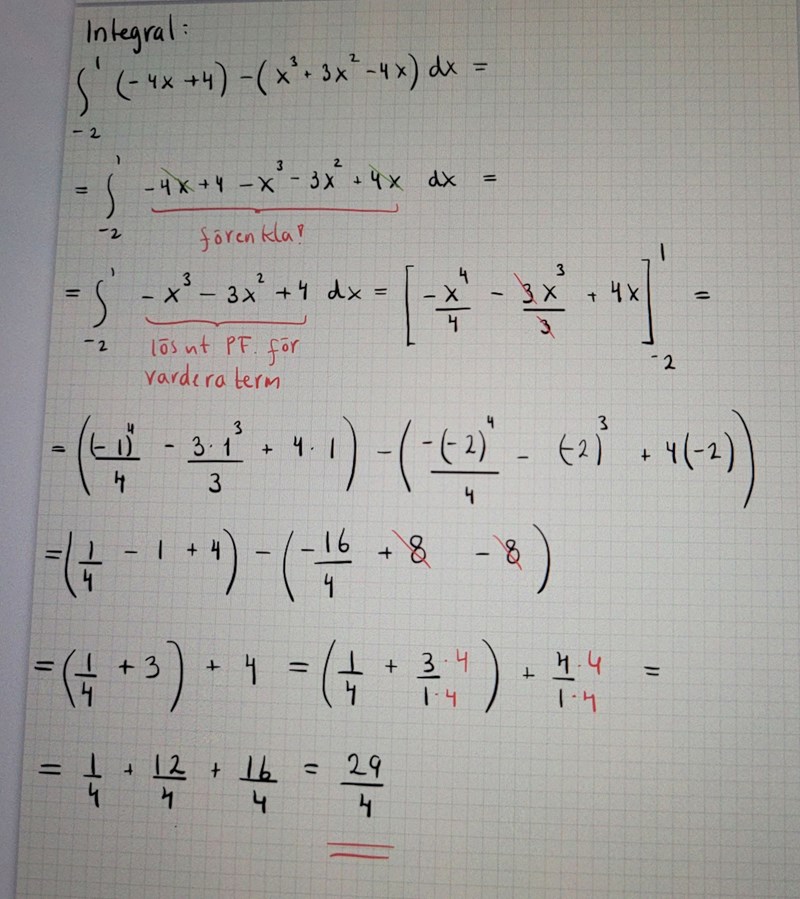 Integral:
∫₋₂¹ (-4x+4) - (x³ + 3x² - 4x) dx =
= ∫₋₂¹ -4x + 4 - x³ - 3x² + 4x dx =
förenkla!
= ∫₋₂¹ -x³ - 3x² + 4 dx = [-x⁴/4 - 3x³/3 + 4x]₋₂¹ =
lös ut PF. för
vardera term
= ((-1)⁴/4 - 3·1³/3 + 4·1) - (-(-2)⁴/4 - (-2)³ + 4(-2))
= (1/4 - 1 + 4) - (-16/4 + 8 - 8)
= (1/4 + 3) + 4 = (1/4 + 3·4/1·4) + 4·4/1·4 =
= 1/4 + 12/4 + 16/4 = 29/4